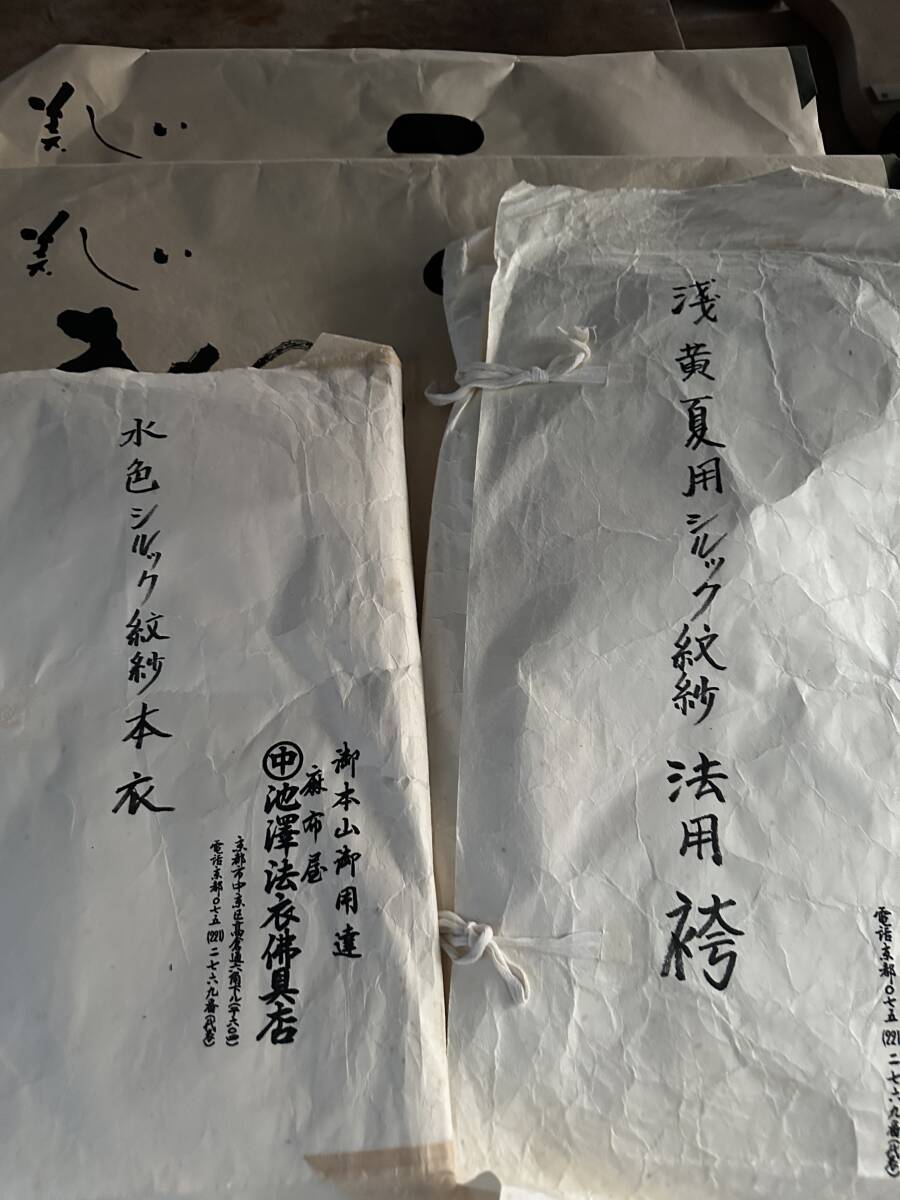 美しい
美しい
浅黄夏用シルック紋紗 法用袴
電話京都〇七五(221)二七六九番(代表)
水色シルック紋紗 本衣
御本山御用達
麻布屋
中 池澤法衣佛具店
京都市中京区高倉通六角下ル(〒六〇四)
電話京都〇七五(221)二七六九番(代表)